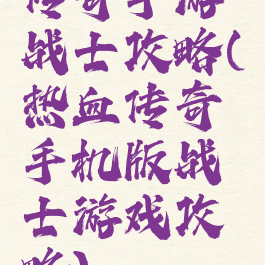 传奇手游
战士攻略(
热血传奇
手机版战
士游戏攻
略)